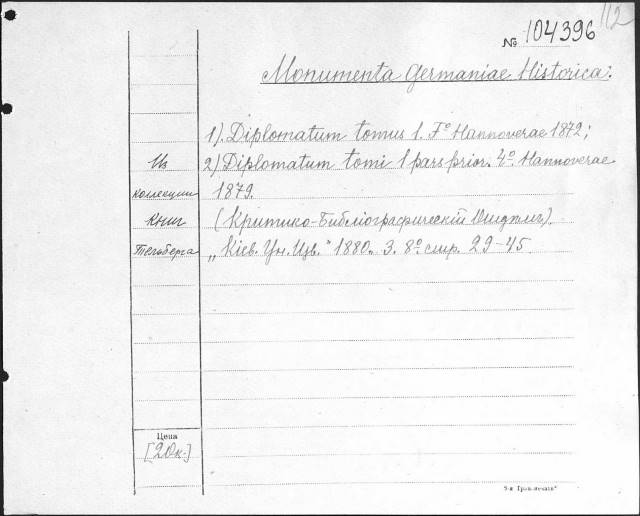 112
№ 104396
Monumenta Germaniae Historica.
1). Diplomatum tomus 1. Fº Hannoverae 1872;
Из 2) Diplomatum tomi 1 pars prior. 4º. Hannoverae
коллекции 1879.
книг (Критико-Библіографическій Отдѣлъ).
Тельберга „Кіев. Ун. Изв." 1880. 3. 8º стр. 29-45.
Цена
[20к.]